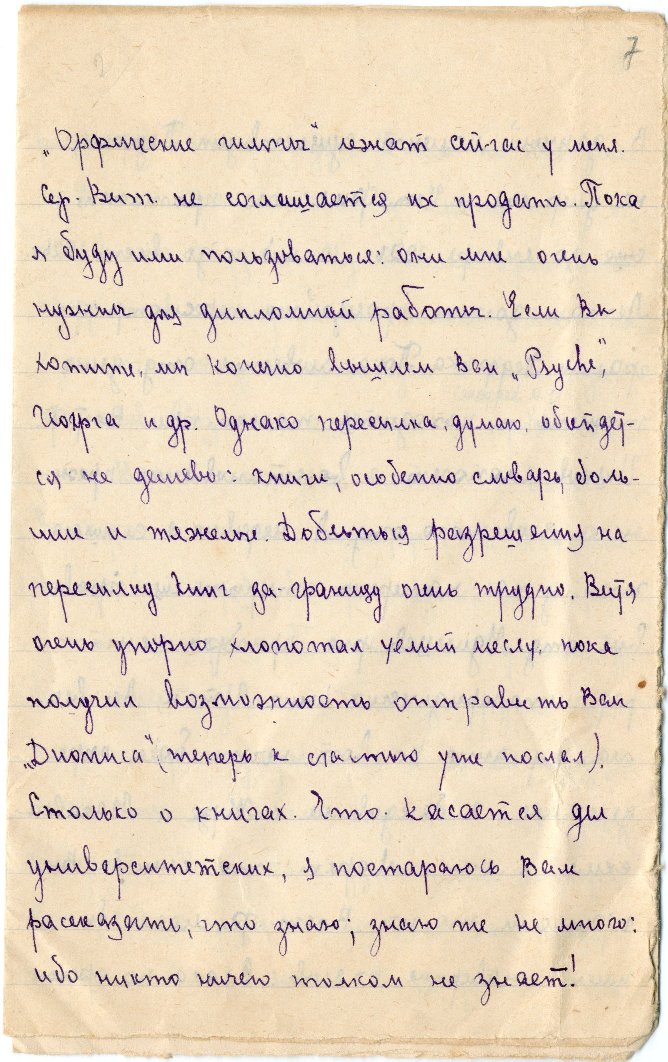 7
„Орфические гимны“ лежат сейчас у меня.
Сер. Вит. не соглашается их продать. Пока
я буду ими пользоваться: они мне очень
нужны для дипломной работы. Если Вы
хотите, мы конечно вышлем Вам „Psyche“,
и др. Однако пересылка, думаю, обойдет-
ся не дешево: книги, особенно словарь, боль-
шие и тяжелые. Добиться разрешения на
пересылку книг за границу очень трудно. Витя
очень упорно хлопотал целый месяц, пока
получил возможность отправить Вам
„Диониса“ (теперь к счастью уже послал).
Столько о книгах. Что касается дел
университетских, я постараюсь Вам
рассказать, что знаю; знаю же не много:
ибо никто ничего толком не знает!